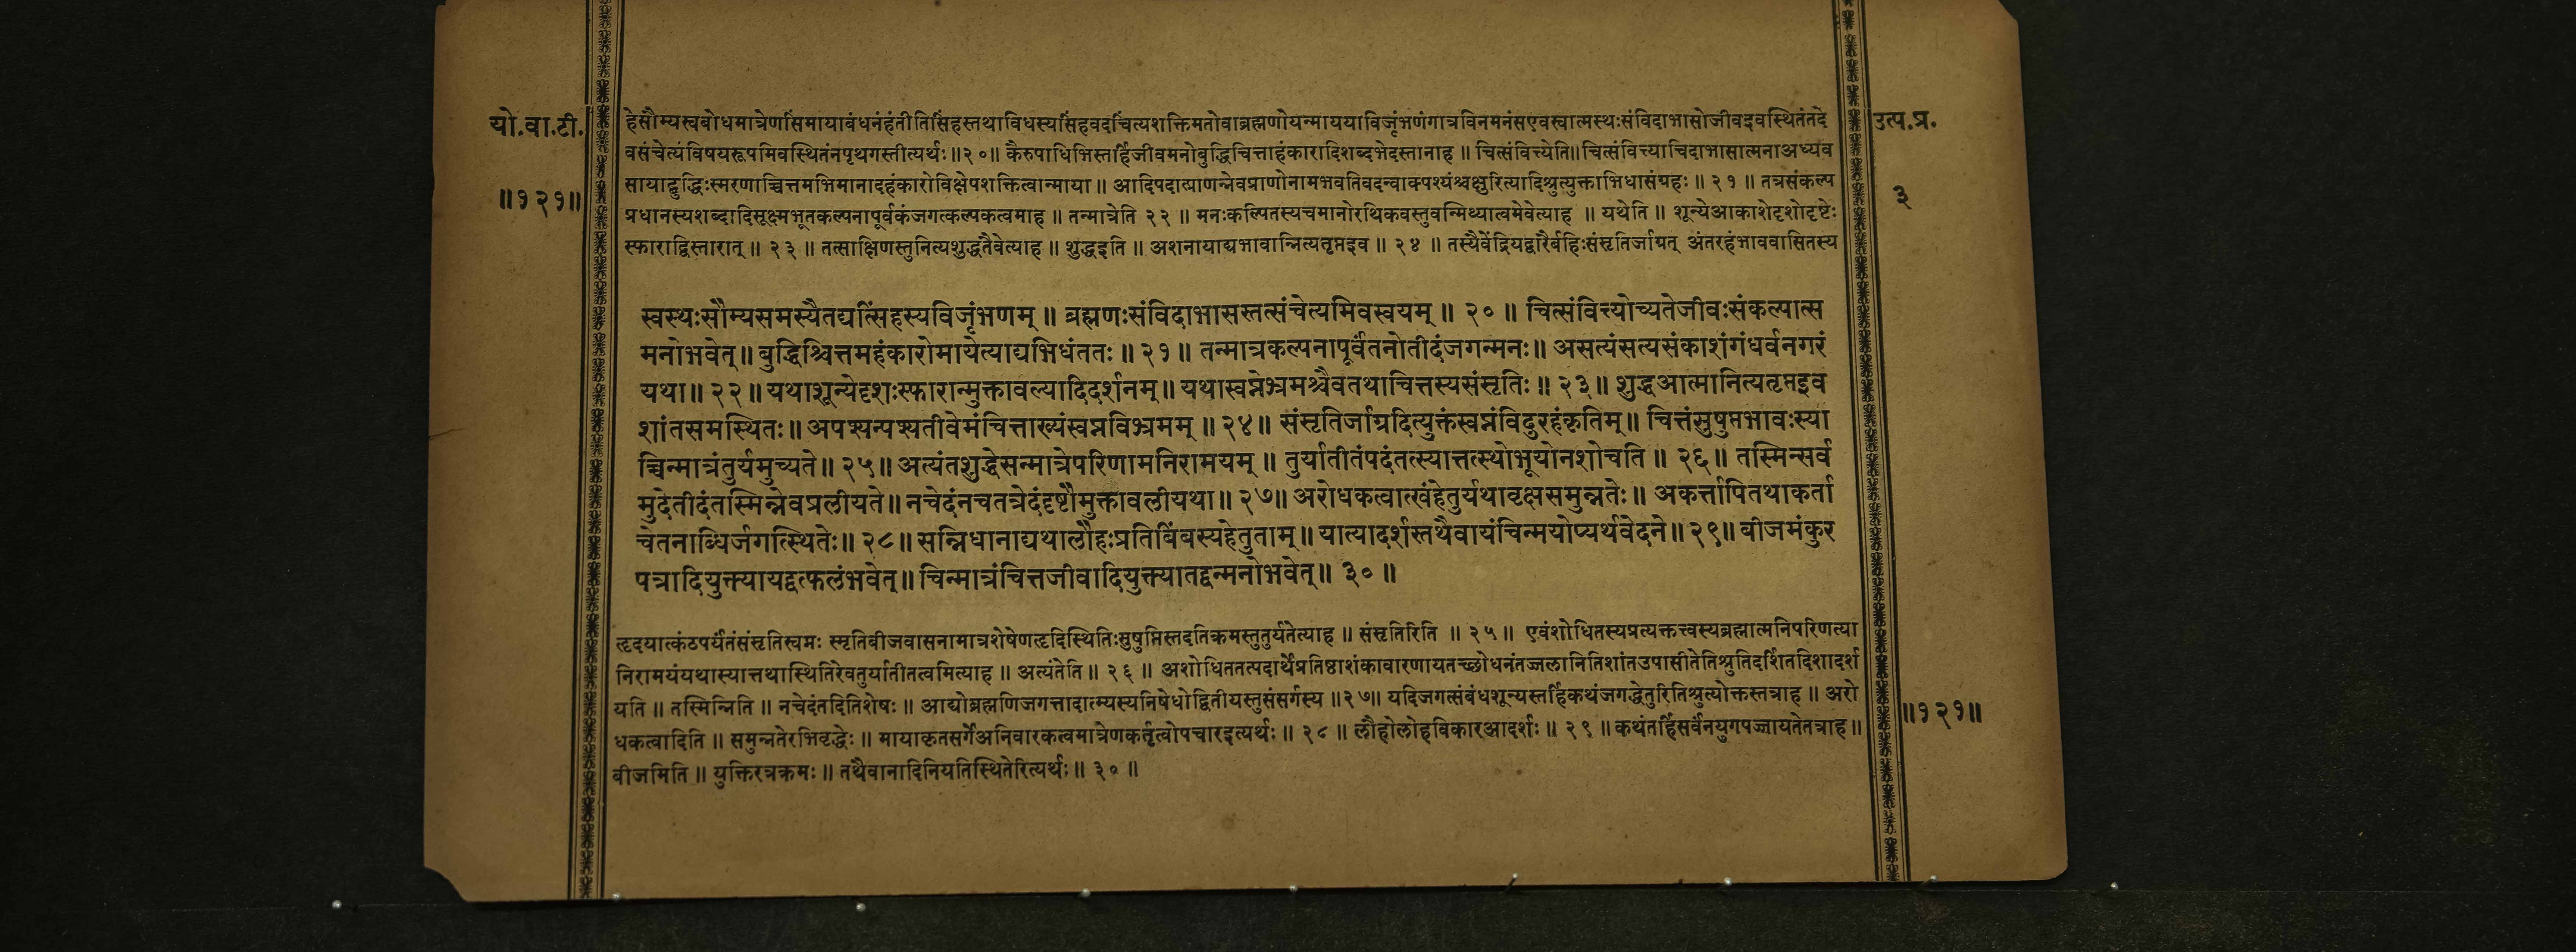 यो.वा.टी.
॥१२१॥
उत्प.प्र.
३
हेसौम्यस्वबोधमात्रेणसिंमायाबंधनंहंतीतिसिंहस्तथाविधस्यसिंहवदचिंत्यशक्तिमतोवाब्रह्मणोयन्माययाविजृंभणंगात्रविनमनंसएवस्वात्मस्थःसंविदाभासोजीवइवस्थितंतदे
वसंचेत्यंविषयरूपमिवस्थितंनपृथगस्तीत्यर्थः॥२०॥ कैरुपाधिभिस्तर्हिजीवमनोबुद्धिचित्ताहंकारादिशब्दभेदस्तानाह ॥ चित्संवित्त्येति॥चित्संवित्त्याचिदाभासात्मनाअध्यव
सायाद्बुद्धिःस्मरणाच्चित्तमभिमानादहंकारोविक्षेपशक्तित्वान्माया ॥ आदिपदात्प्राणन्नेवप्राणोनामभवतिवदन्वाक्पश्यंश्चक्षुरित्यादिश्रुत्युक्ताभिधासंग्रहः ॥ २१ ॥ तत्रसंकल्प
प्रधानस्यशब्दादिसूक्ष्मभूतकल्पनापूर्वकंजगत्कल्पकत्वमाह ॥ तन्मात्रेति २२ ॥ मनःकल्पितस्यचमानोरथिकवस्तुवन्मिथ्यात्वमेवेत्याह ॥ यथेति ॥ शून्येआकाशेदृशोदृष्टेः
स्फाराद्विस्तारात् ॥ २३ ॥ तत्साक्षिणस्तुनित्यशुद्धतैवेत्याह ॥ शुद्धइति ॥ अशनायाद्यभावान्नित्यतृप्तइव ॥ २४ ॥ तस्यैवेंद्रियद्वारैर्बहिःसंसृतिर्जाग्रत् अंतरहंभाववासितस्य
स्वस्थःसौम्यसमस्यैतद्यत्सिंहस्यविजृंभणम् ॥ ब्रह्मणःसंविदाभासस्तत्संचेत्यमिवस्वयम् ॥ २० ॥ चित्संवित्त्योच्यतेजीवःसंकल्पात्स
मनोभवेत्॥ बुद्धिश्चित्तमहंकारोमायेत्याद्यभिधंततः ॥ २१ ॥ तन्मात्रकल्पनापूर्वंतनोतीदंजगन्मनः॥ असत्यंसत्यसंकाशंगंधर्वनगरं
यथा॥ २२॥ यथाशून्येदृशःस्फारान्मुक्तावल्यादिदर्शनम्॥ यथास्वप्नेभ्रमश्चैवतथाचित्तस्यसंसृतिः ॥ २३॥ शुद्धआत्मानित्यतृप्तइव
शांतसमस्थितः॥ अपश्यन्पश्यतीवेमंचित्ताख्यंस्वप्नविभ्रमम् ॥ २४॥ संसृतिर्जाग्रदित्युक्तंस्वप्नंविदुरहंकृतिम्॥ चित्तंसुषुप्तभावःस्या
च्चिन्मात्रंतुर्यमुच्यते॥ २५॥ अत्यंतशुद्धेसन्मात्रेपरिणामनिरामयम् ॥ तुर्यातीतंपदंतत्स्यात्तत्स्थोभूयोनशोचति ॥ २६॥ तस्मिन्सर्व
मुदेतीदंतस्मिन्नेवप्रलीयते॥ नचेदंनचतत्रेदंदृष्टौमुक्तावलीयथा॥ २७॥ अरोधकत्वात्खंहेतुर्यथावृक्षसमुन्नतेः॥ अकर्त्तापितथाकर्ता
चेतनाब्धिर्जगत्स्थितेः॥ २८॥ सन्निधानाद्यथालौहःप्रतिबिंबस्यहेतुताम्॥ यात्यादर्शस्तथैवायंचिन्मयोप्यर्थवेदने॥ २९॥ बीजमंकुर
पत्रादियुक्त्यायद्वत्फलंभवेत्॥ चिन्मात्रंचित्तजीवादियुक्त्यातद्वन्मनोभवेत्॥ ३० ॥
हृदयात्कंठपर्यंतंसंसृतिस्वप्नः स्मृतिबीजवासनामात्रशेषेणहृदिस्थितिःसुषुप्तिस्तदतिक्रमस्तुतुर्यतेत्याह ॥ संसृतिरिति ॥ २५ ॥ एवंशोधितस्यप्रत्यक्तत्त्वस्यब्रह्मात्मनिपरिणत्या
निरामयंयथास्यात्तथास्थितिरेवतुर्यातीतत्वमित्याह ॥ अत्यंतेति ॥ २६ ॥ अशोधिततत्पदार्थेप्रतिष्ठाशंकावारणायतच्छोधनंतज्जलानितिशांतउपासीतेतिश्रुतिदर्शितदिशादर्श
यति ॥ तस्मिन्निति ॥ नचेदंतदितिशेषः ॥ आद्योब्रह्मणिजगत्तादात्म्यस्यनिषेधोद्वितीयस्तुसंसर्गस्य ॥२७॥ यदिजगत्संबंधशून्यस्तर्हिकथंजगद्धेतुरितिश्रुत्योक्तस्तत्राह ॥ अरो
धकत्वादिति ॥ समुन्नतेरभिवृद्धेः ॥ मायाकृतसर्गेअनिवारकत्वमात्रेणकर्तृत्वोपचारइत्यर्थः ॥ २८ ॥ लौहोलोहविकारआदर्शः ॥ २९ ॥ कथंतर्हिसर्वंनयुगपज्जायतेतत्राह ॥
बीजमिति ॥ युक्तिरत्रक्रमः ॥ तथैवानादिनियतिस्थितेरित्यर्थः ॥ ३० ॥
॥१२१॥